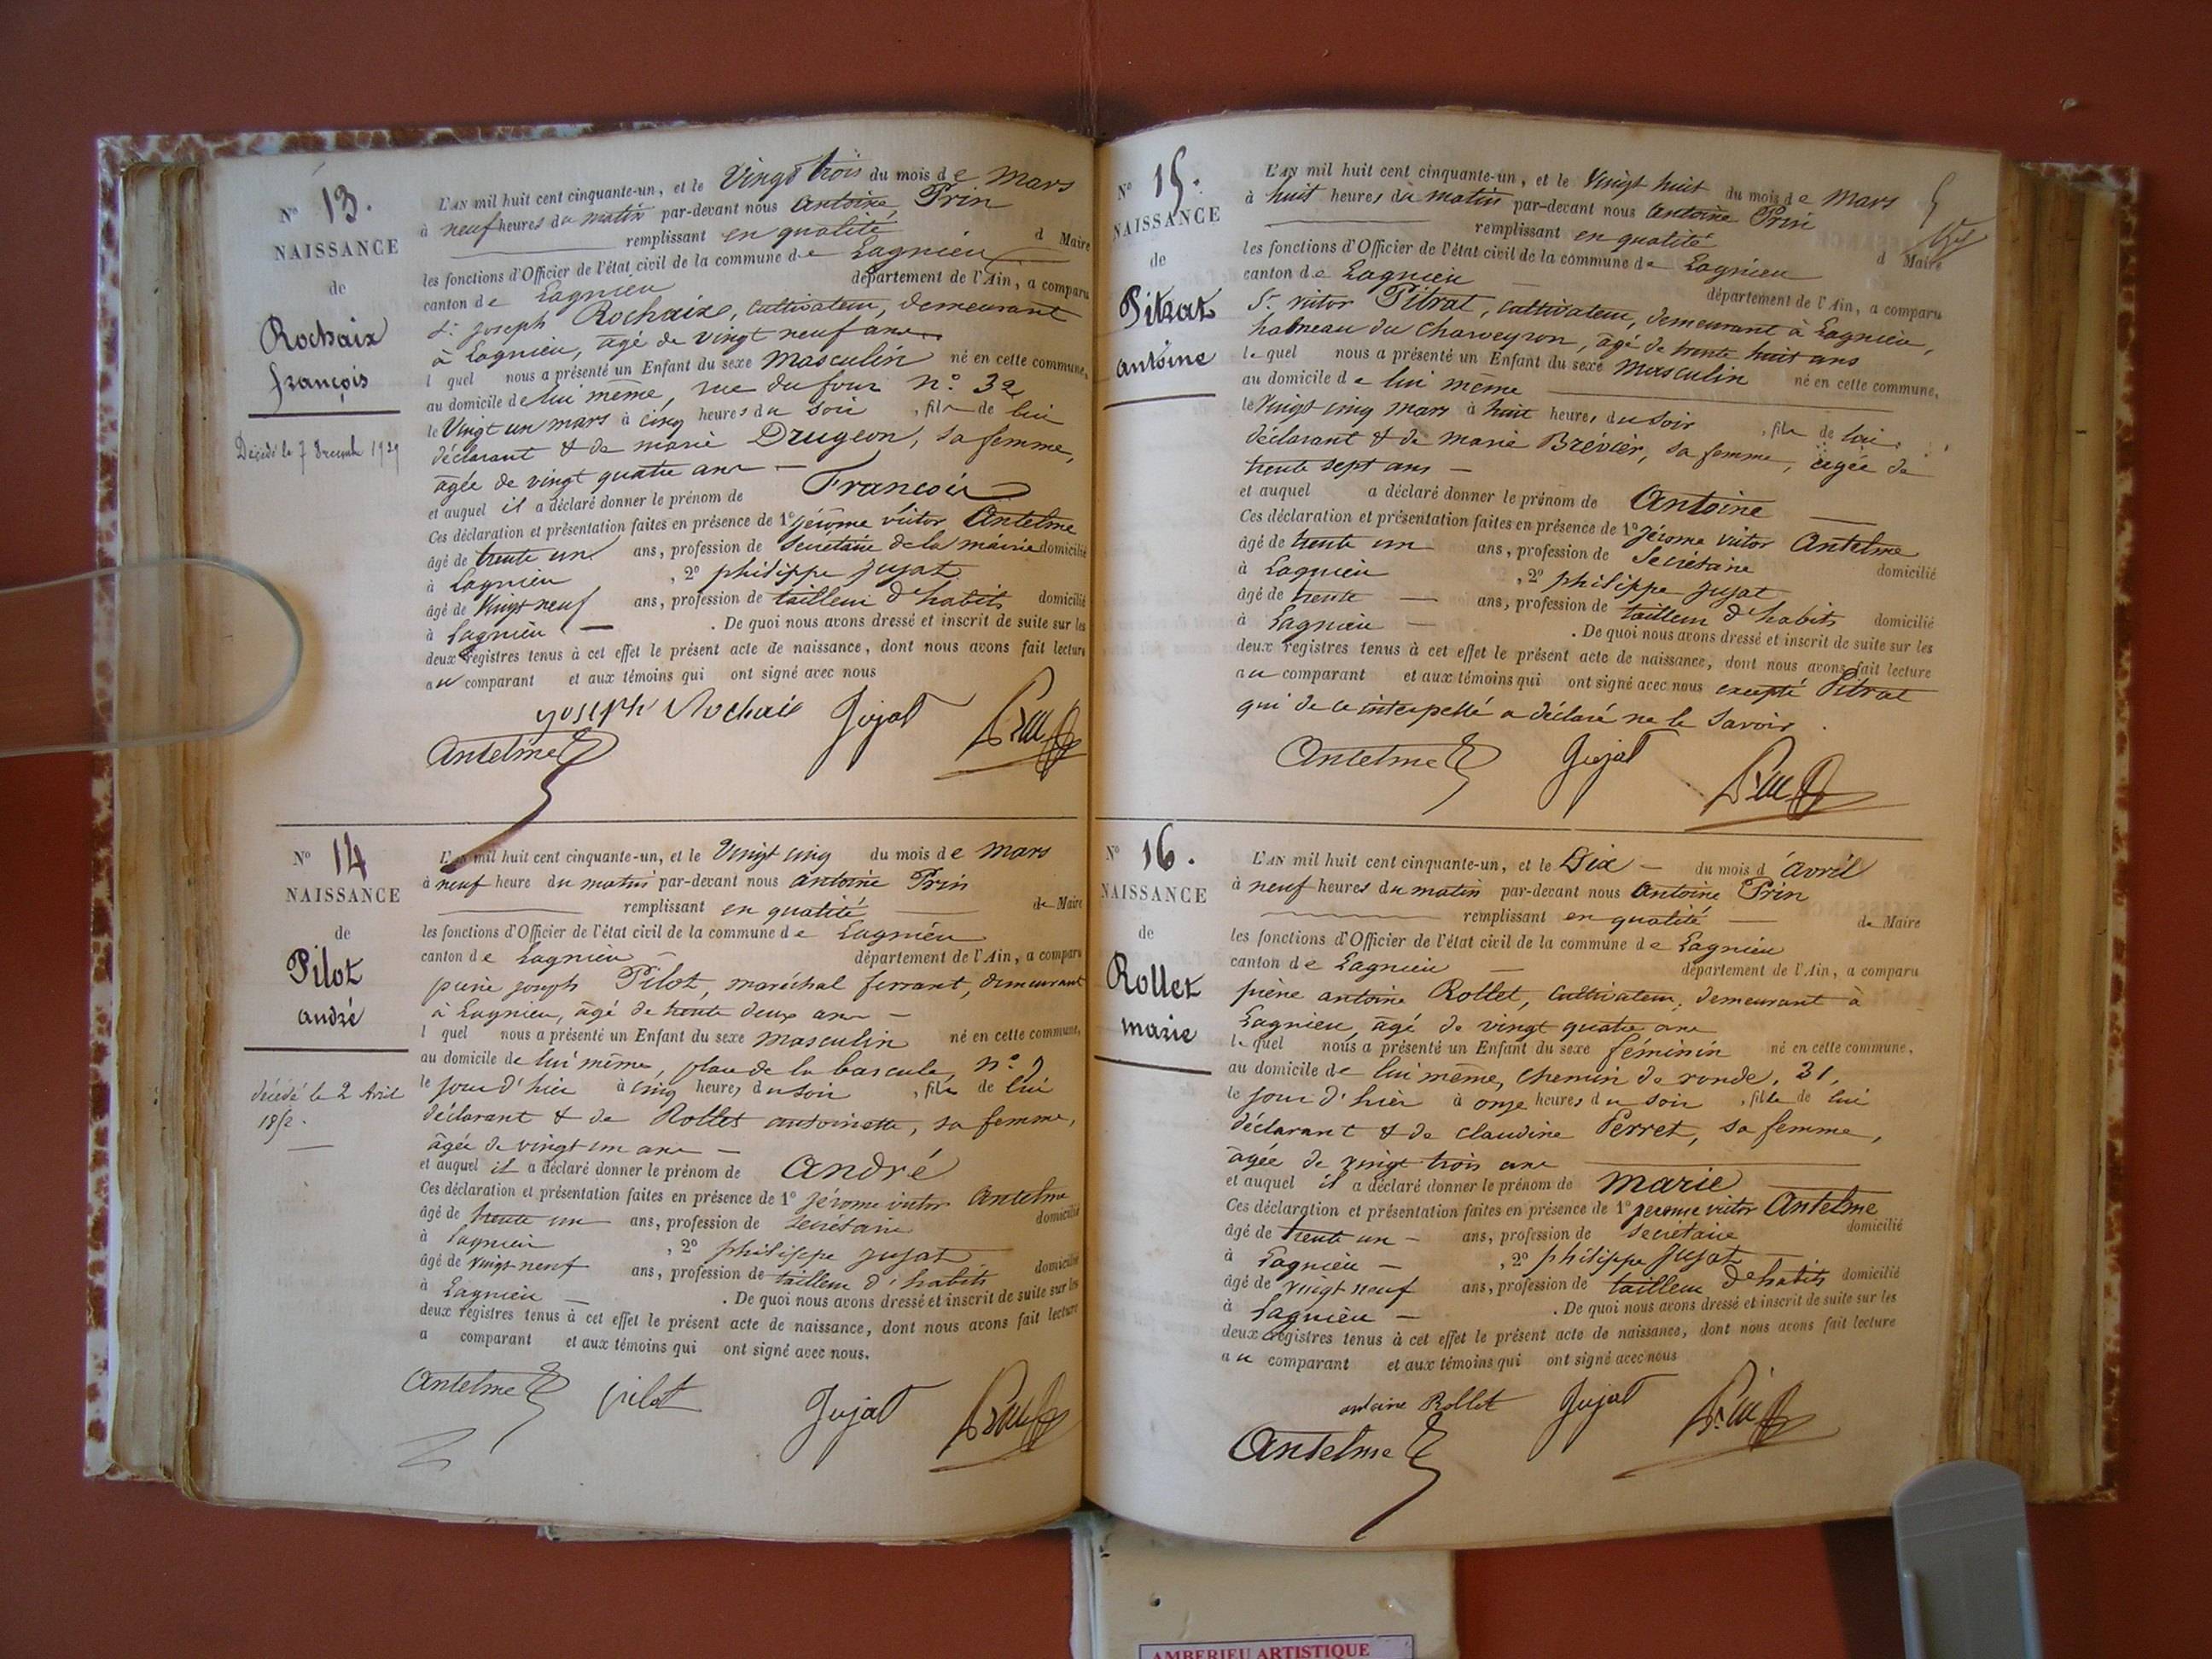 N° 13.
NAISSANCE
de
Rochaix
françois
Décédé le 7 Decembre 1929
L'AN mil huit cent cinquante-un, et le Vingt trois du mois de Mars
à neuf heures du matin par-devant nous Antoine Prin
remplissant en qualité d Maire
les fonctions d'Officier de l'état civil de la commune de Lagnieu
canton de Lagnieu département de l'Ain, a comparu
Sr joseph Rochaix, cultivateur, demeurant
à Lagnieu, âgé de vingt neuf ans
l quel nous a présenté un Enfant du sexe Masculin né en cette commune,
au domicile de lui même, rue du four n°. 32
le Vingt un mars à cinq heures du soir , fils de lui
déclarant & de marie Drugeon, sa femme,
âgée de vingt quatre ans —
et auquel il a déclaré donner le prénom de Francois
Ces déclaration et présentation faites en présence de 1° jérôme victor Antelme
âgé de trente un ans, profession de secrétaire de la mairie domicilié
à Lagnieu , 2° philippe jujat
âgé de Vingt neuf ans, profession de tailleur d'habits domicilié
à Lagnieu — . De quoi nous avons dressé et inscrit de suite sur les
deux registres tenus à cet effet le présent acte de naissance, dont nous avons fait lecture
au comparant et aux témoins qui ont signé avec nous
joseph Rochaix Jujat Prin
Antelme
N° 14
NAISSANCE
de
Pilot
andré
décédé le 2 Avril
1852.
L'AN mil huit cent cinquante-un, et le Vingt cinq du mois de Mars
à neuf heure du matin par-devant nous Antoine Prin
remplissant en qualité de Maire
les fonctions d'Officier de l'état civil de la commune de Lagnieu
canton de Lagnieu — département de l'Ain, a comparu
pierre joseph Pilot, maréchal ferrant, demeurant
à Lagnieu, âgé de trente deux ans —
l quel nous a présenté un Enfant du sexe Masculin né en cette commune,
au domicile de lui même, place de la bascule, n°. 9
le jour d'hier à cinq heures du soir , fils de lui
déclarant & de Rollet antoinette, sa femme,
âgée de vingt un ans —
et auquel il a déclaré donner le prénom de André
Ces déclaration et présentation faites en présence de 1° jérome victor Antelme
âgé de trente un ans, profession de secrétaire domicilié
à Lagnieu , 2° philippe jujat
âgé de vingt neuf ans, profession de tailleur d'habits domicilié
à Lagnieu — . De quoi nous avons dressé et inscrit de suite sur les
deux registres tenus à cet effet le présent acte de naissance, dont nous avons fait lecture
a comparant et aux témoins qui ont signé avec nous.
Antelme pilot Jujat Prin
N° 15.
NAISSANCE
de
Pitrat
antoine
L'AN mil huit cent cinquante-un, et le Vingt huit du mois de Mars
à huit heures du matin par-devant nous Antoine Prin
remplissant en qualité d Maire
les fonctions d'Officier de l'état civil de la commune de Lagnieu
canton de Lagnieu — département de l'Ain, a comparu
Sr victor Pitrat, cultivateur, demeurant à Lagnieu,
hameau du Charveyron, âgé de trente huit ans
le quel nous a présenté un Enfant du sexe Masculin né en cette commune,
au domicile de lui même
le Vingt cinq mars à huit heures du soir , fils de lui
déclarant & de Marie Brévier, sa femme, âgée de
trente sept ans —
et auquel a déclaré donner le prénom de Antoine
Ces déclaration et présentation faites en présence de 1° Jérome victor Antelme
âgé de trente un ans, profession de Secrétaire domicilié
à Lagnieu , 2° philippe jujat
âgé de trente — ans, profession de tailleur d'habits domicilié
à Lagnieu — . De quoi nous avons dressé et inscrit de suite sur les
deux registres tenus à cet effet le présent acte de naissance, dont nous avons fait lecture
au comparant et aux témoins qui ont signé avec nous excepté Pitrat
qui de ce interpellé a déclaré ne le savoir.
Antelme Jujat Prin
N° 16.
NAISSANCE
de
Rollet
marie
L'AN mil huit cent cinquante-un, et le Dix — du mois d'Avril
à neuf heures du matin par-devant nous Antoine Prin
remplissant en qualité — de Maire
les fonctions d'Officier de l'état civil de la commune de Lagnieu
canton de Lagnieu — département de l'Ain, a comparu
pierre antoine Rollet, cultivateur, demeurant à
Lagnieu, âgé de vingt quatre ans
le quel nous a présenté un Enfant du sexe féminin né en cette commune,
au domicile de lui même, chemin de ronde, 31,
le jour d'hier à onze heures du soir , fille de lui
déclarant & de claudine Perret, sa femme,
âgée de vingt trois ans
et auquel il a déclaré donner le prénom de Marie
Ces déclaration et présentation faites en présence de 1° jerome victor Antelme
âgé de trente un — ans, profession de secrétaire domicilié
à Lagnieu — , 2° philippe jujat
âgé de vingt neuf ans, profession de tailleur d'habits domicilié
à Lagnieu — . De quoi nous avons dressé et inscrit de suite sur les
deux registres tenus à cet effet le présent acte de naissance, dont nous avons fait lecture
au comparant et aux témoins qui ont signé avec nous
antoine Rollet Jujat Prin
Antelme
AMBERIEU ARTISTIQUE